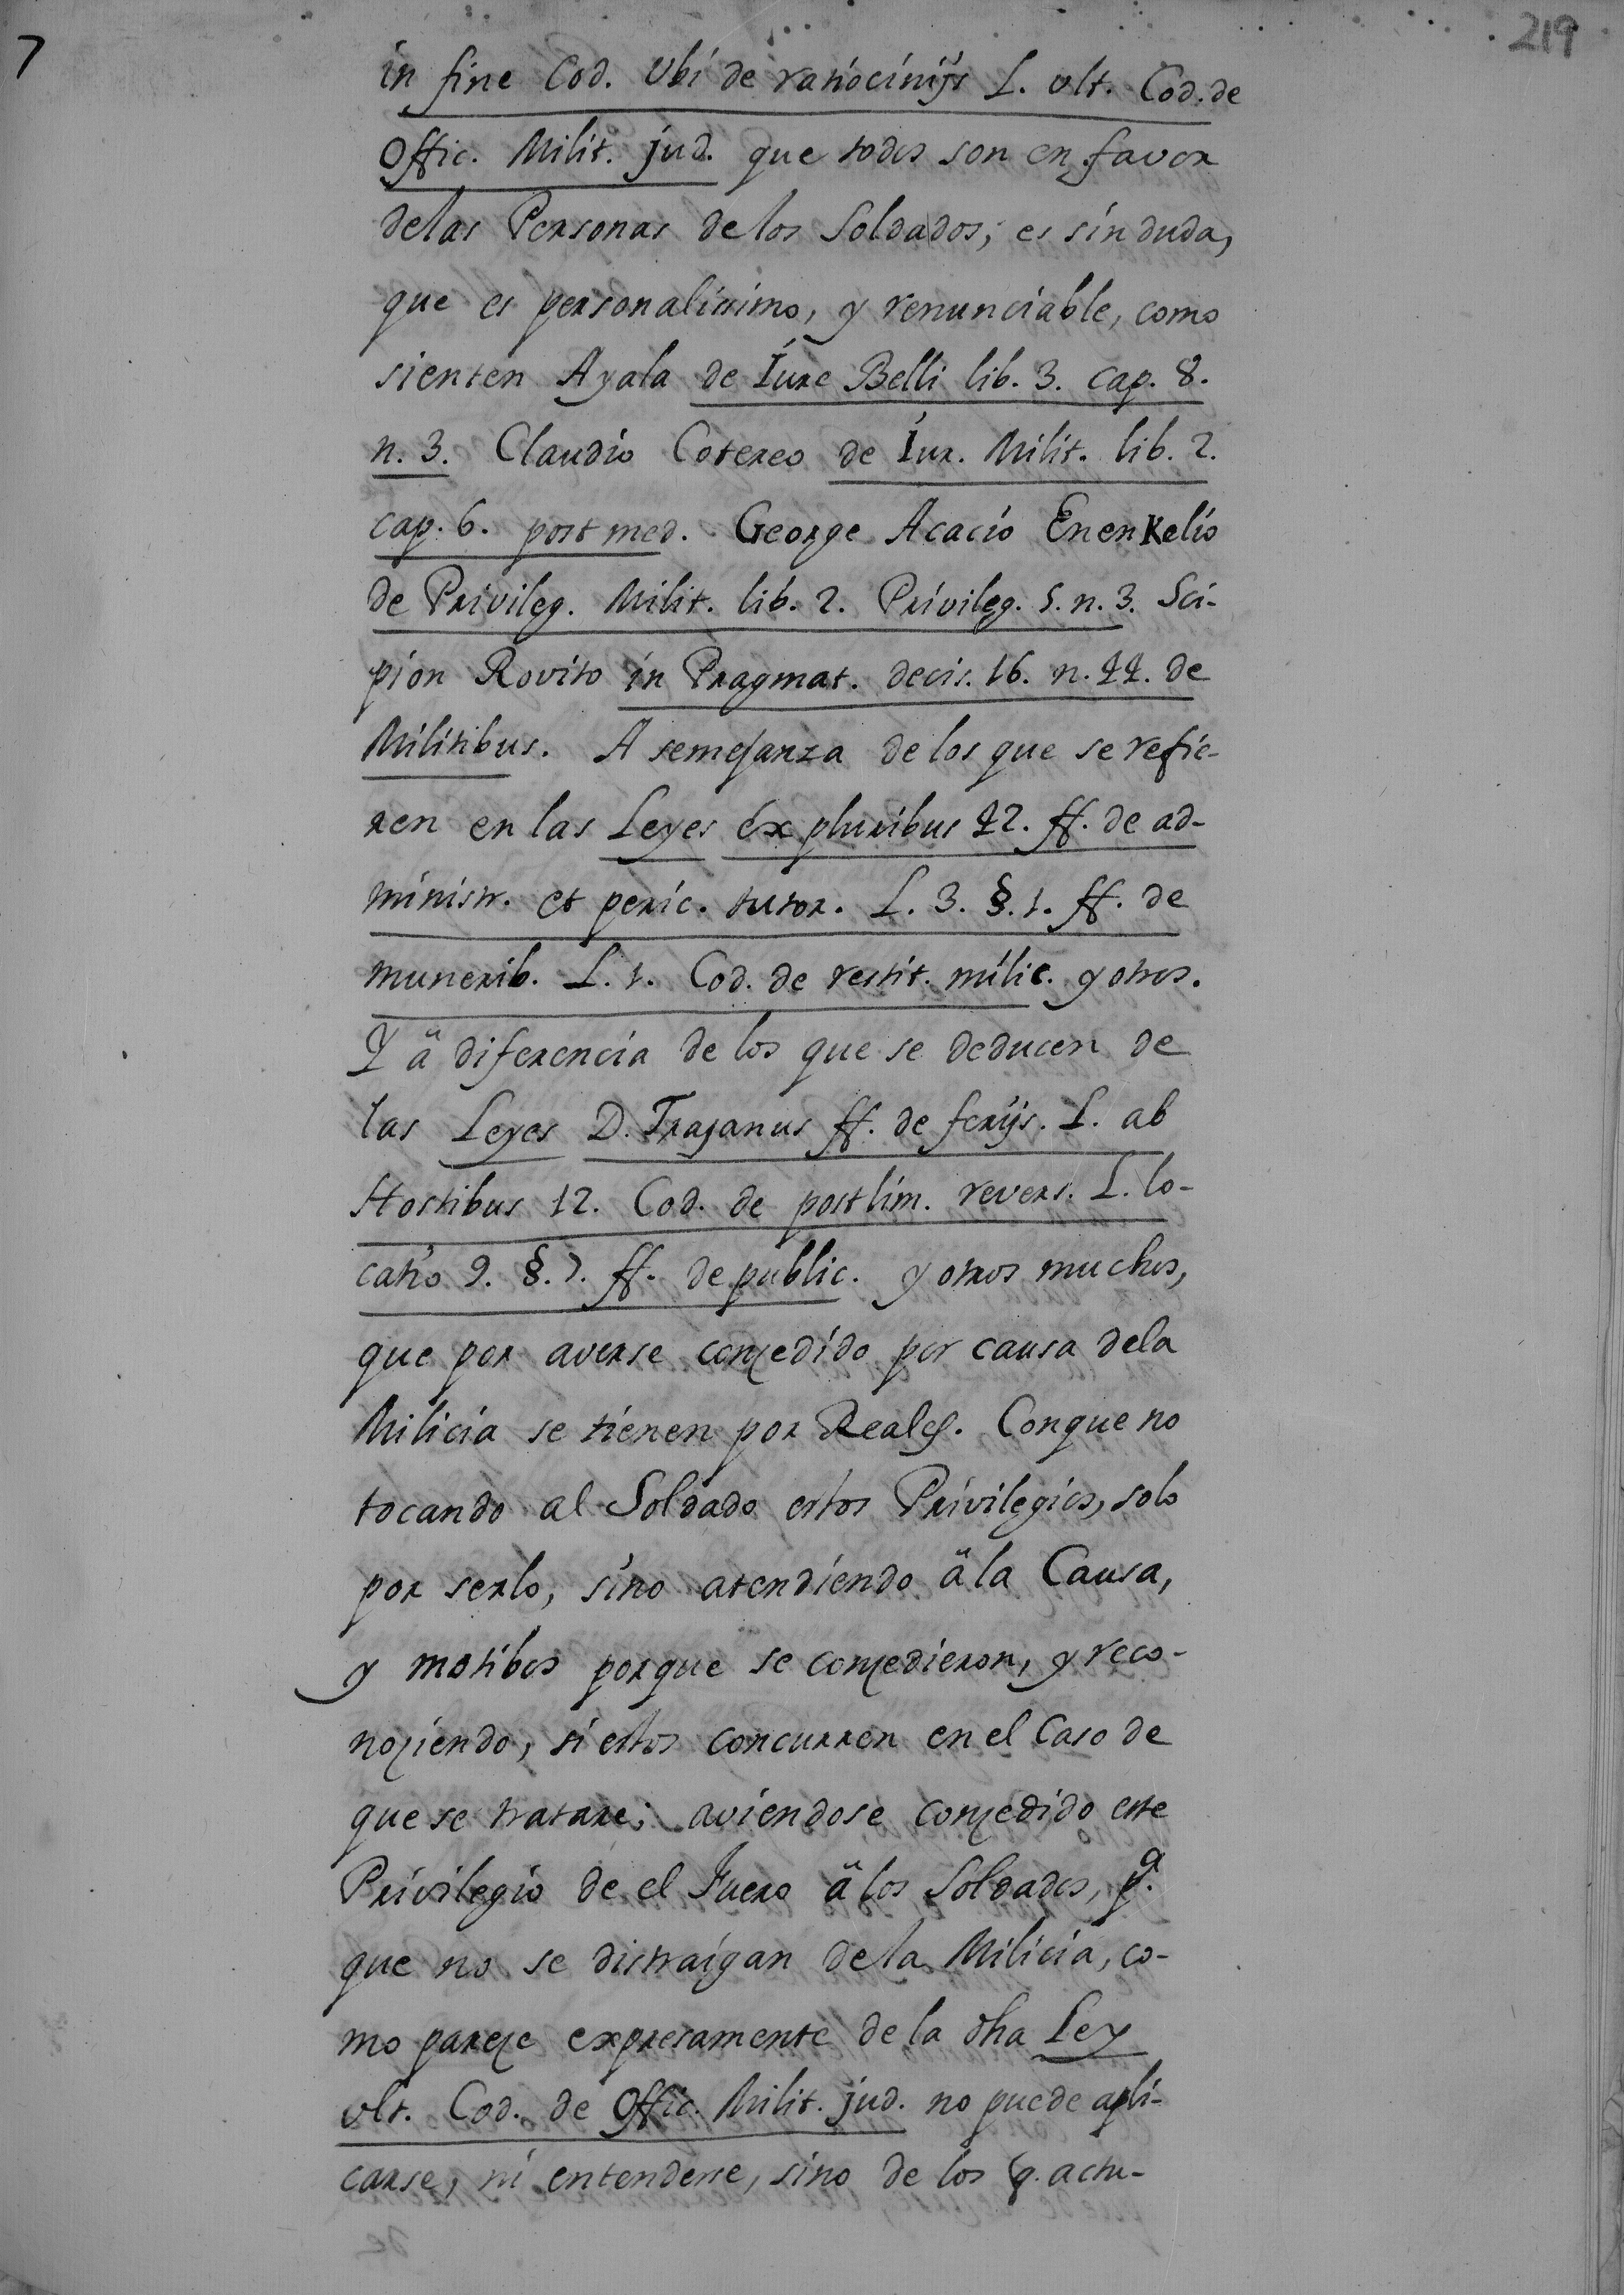 7
219
in fine Cod. Vbi de ratiocinijs L. vlt. Cod. de
Offic. Milit. jud. que todos son en favor
delas Personas de los Soldados; es sin duda,
que es personalissimo, y renunciable, como
sienten Ayala de Iure Belli lib. 3. cap. 8.
n. 3. Claudio Cotereo de Iur. Milit. lib. 2.
cap. 6. post med. George Acacio Enenkelio
de Privileg. Milit. lib. 2. Privileg. 5. n. 3. Sci-
pion Rovito in Pragmat. decis. 16. n. 44. de
Militibus. A semejanza de los que se refie-
ren en las Leyes Ex pluribus 42. ff. de ad-
ministr. et peric. tutor. L. 3. §. 1. ff. de
munerib. L. 1. Cod. de restit. milic. y otros.
Y â diferencia de los que se deducen de
las Leyes D. Trajanus ff. de ferijs. L. ab
Hostibus 12. Cod. de postlim. revers. L. lo-
catio 9. §. 7. ff. de public. y otros muchos,
que por averse conzedido por causa dela
Milicia se tienen por Reales. Conque no
tocando al Soldado estos Privilegios, solo
por serlo, sino atendiendo â la Causa,
y motibos porque se conzedieron, y reco-
noziendo, si estos concurren en el Caso de
que se tratare; aviendose conzedido este
Privilegio de el Fuero â los Soldados, p.ª
que no se distraigan dela Milicia, co-
mo pareze expresamente de la dha Ley
vlt. Cod. de Offic. Milit. jud. no puede apli-
carse, ni entenderse, sino de los q. actu-